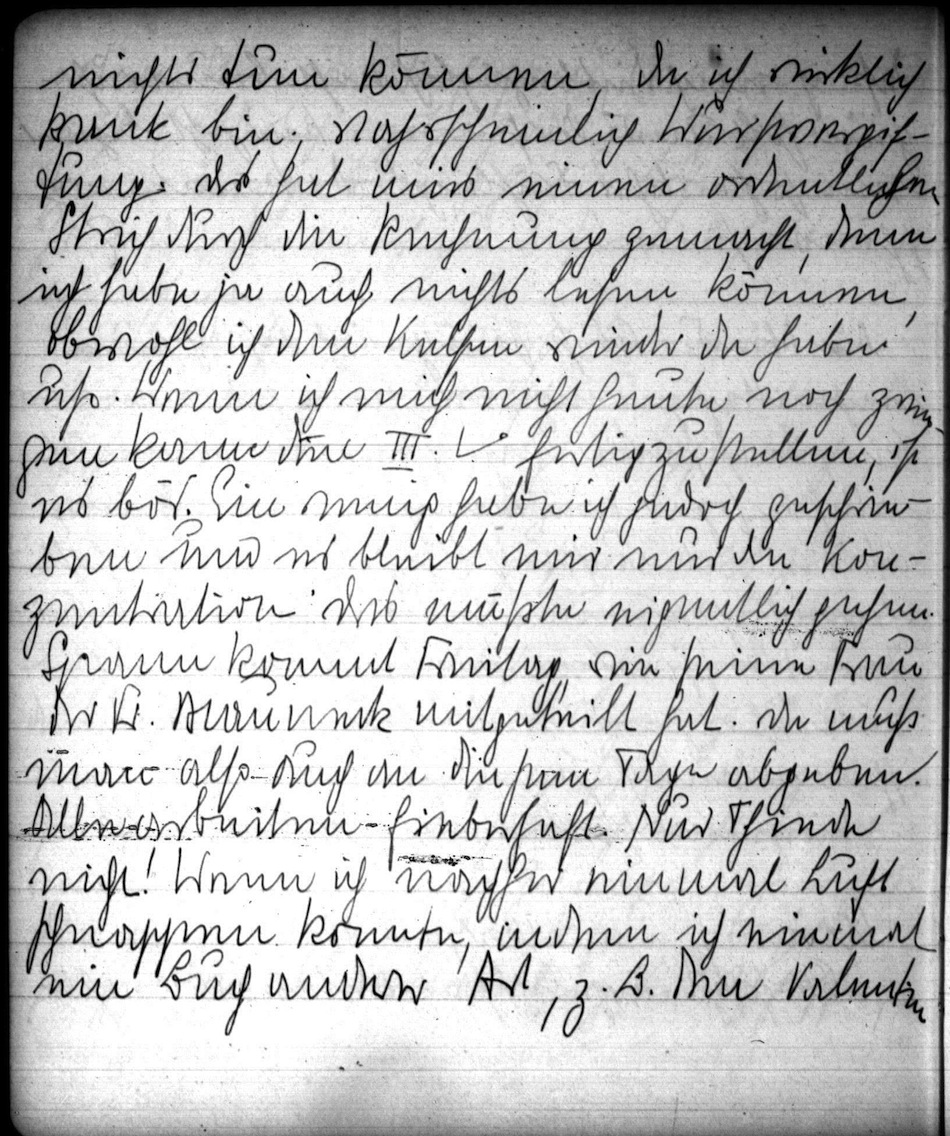 nichts tun können, da ich wirklich
krank bin, wahrscheinlich Wurstvergif-
tung. Das hat mir einen ordentlichen
Strich durch die Rechnung gemacht, denn
ich habe ja auch nichts lesen können,
obwohl ich den wieder da habe
usw. Wenn ich mich nicht heute noch zwin-
gen kann den III. V fertigzustellen, ist
es bös. Ein wenig habe ich jedoch geschrie-
ben und es bleibt mir nur die Kon-
zentration das müßte eigentlich gehen.
Spann kommt Freitag, wie seine Frau
der V. mitgeteilt hat. Da muß
man also auch an diesem Tage abgeben.
Alles arbeiten fieberhaft. Nur Thinde
nicht! Wenn ich nachher einmal Luft
schnappen könnte, indem ich einmal
ein Buch anderer Art, z. B. den